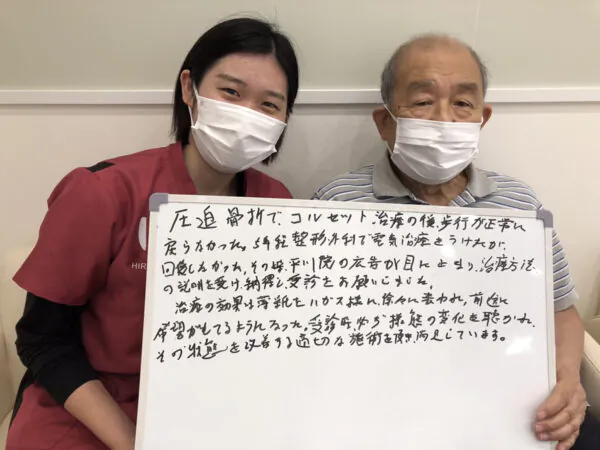 圧迫骨折で、コルセット治療の後、歩行が正常に
戻らなかった。5年程整形外科で電気治療をうけたが、
回復しなかった。その時、平川院の広告が目に止まり、治療方法
の説明を受け、納得し受診をお願いしました。
治療の効果は薄紙をハガス様に、徐々に表われ、前途に
希望がもてるようになった。受診時、必ず様態の変化を聴かれ、
その状態を改善する適切な施術を頂き、満足しています。
HIR